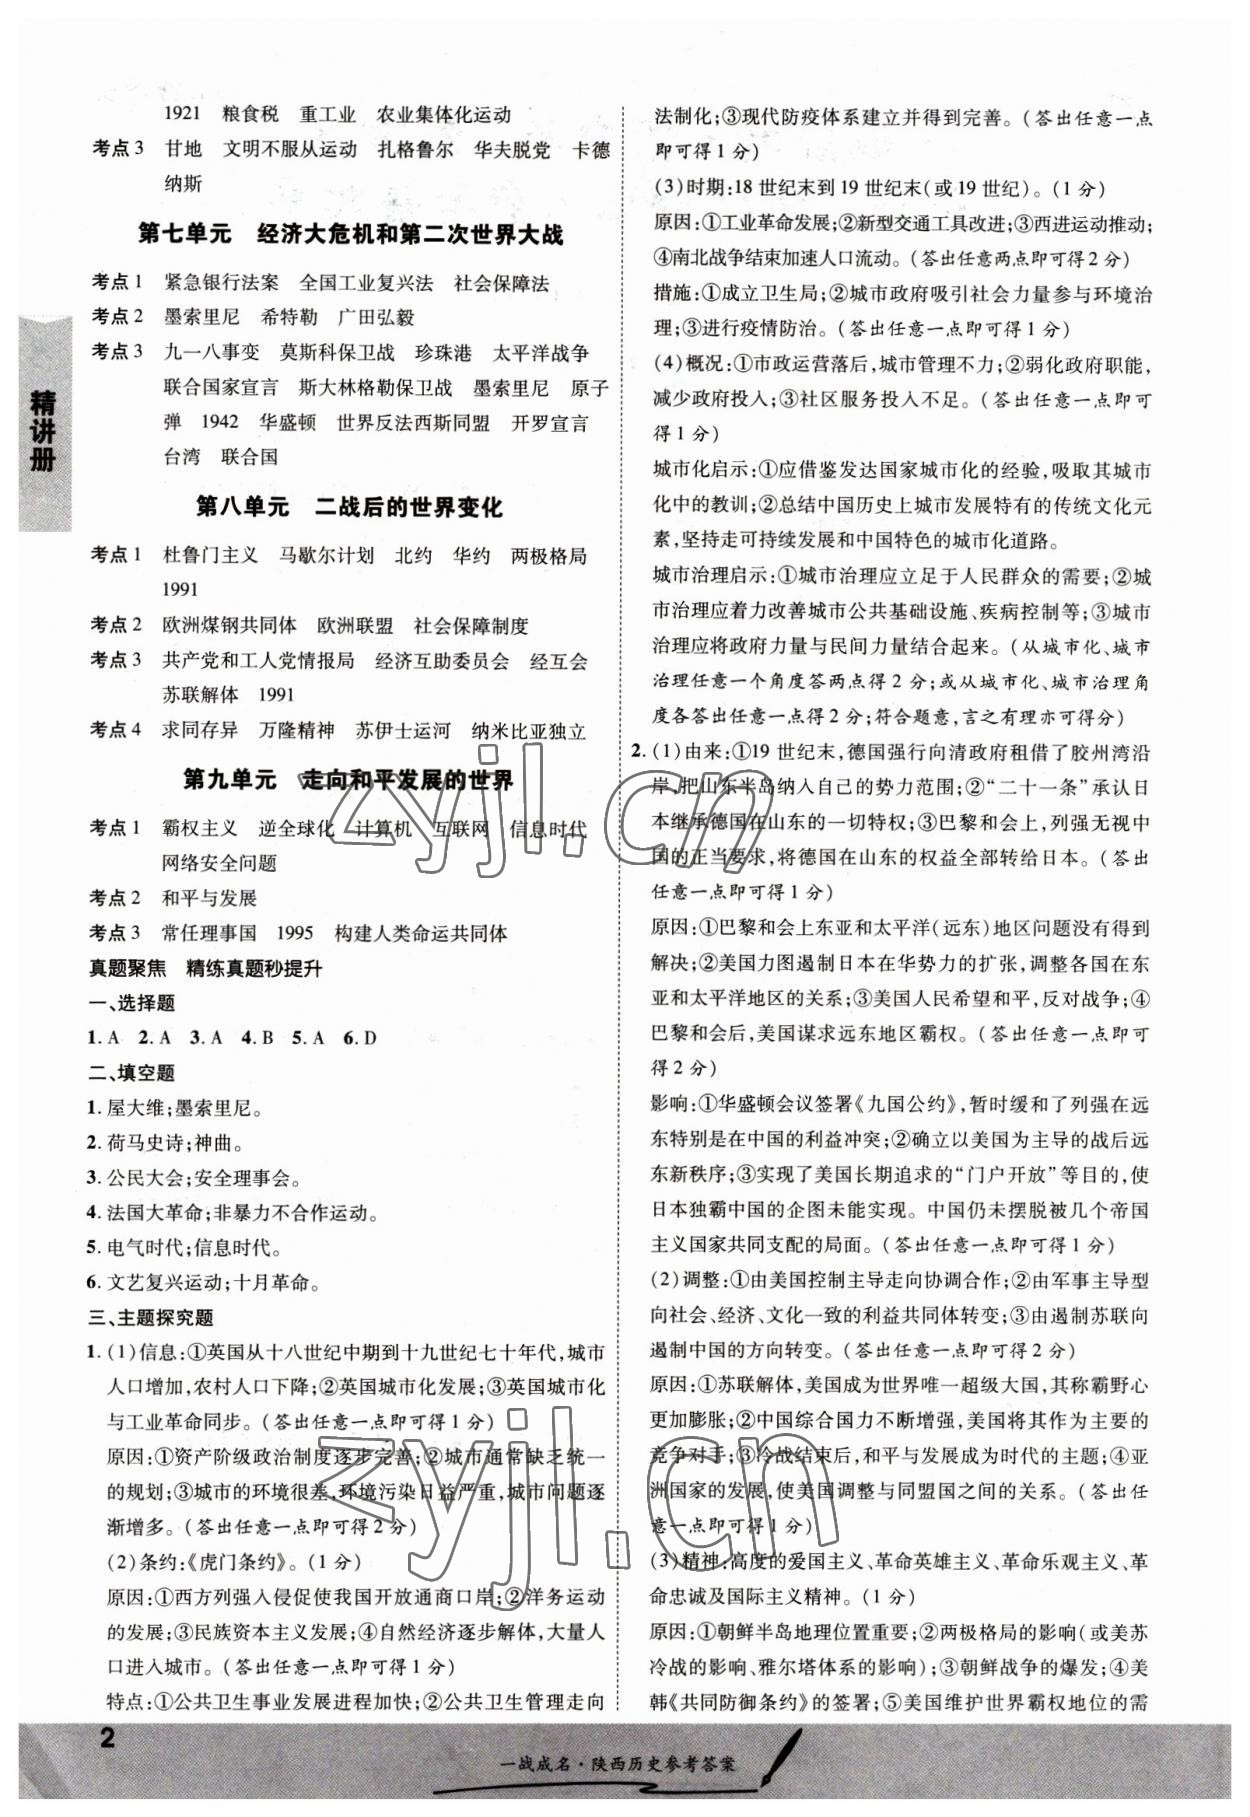 1921 粮食税 重工业 农业集体化运动
考点3 甘地 文明不服从运动 扎格鲁尔 华夫脱党 卡德
纳斯
第七单元 经济大危机和第二次世界大战
考点1 紧急银行法案 全国工业复兴法 社会保障法
考点2 墨索里尼 希特勒 广田弘毅
考点3 九一八事变 莫斯科保卫战 珍珠港 太平洋战争
联合国家宣言 斯大林格勒保卫战 墨索里尼 原子
弹 1942 华盛顿 世界反法西斯同盟 开罗宣言
台湾 联合国
第八单元 二战后的世界变化
考点1 杜鲁门主义 马歇尔计划 北约 华约 两极格局
1991
考点2 欧洲煤钢共同体 欧洲联盟 社会保障制度
考点3 共产党和工人党情报局 经济互助委员会 经互会
苏联解体 1991
考点4 求同存异 万隆精神 苏伊士运河 纳米比亚独立
第九单元 走向和平发展的世界
考点1 霸权主义 逆全球化 计算机 互联网 信息时代
网络安全问题
考点2 和平与发展
考点3 常任理事国 1995 构建人类命运共同体
真题聚焦 精练真题秒提升
一、选择题
1. A 2. A 3. A 4. B 5. A 6. D
二、填空题
1. 屋大维;墨索里尼。
2. 荷马史诗;神曲。
3. 公民大会;安全理事会。
4. 法国大革命;非暴力不合作运动。
5. 电气时代;信息时代。
6. 文艺复兴运动;十月革命。
三、主题探究题
1. (1)信息:①英国从十八世纪中期到十九世纪七十年代,城市
人口增加,农村人口下降;②英国城市化发展;③英国城市化
与工业革命同步。(答出任意一点即可得1分)
原因:①资产阶级政治制度逐步完善;②城市通常缺乏统一
的规划;③城市的环境很差,环境污染日益严重,城市问题逐
渐增多。(答出任意一点即可得2分)
(2)条约:《虎门条约》。(1分)
原因:①西方列强入侵促使我国开放通商口岸;②洋务运动
的发展;③民族资本主义发展;④自然经济逐步解体,大量人
口进入城市。(答出任意一点即可得1分)
特点:①公共卫生事业发展进程加快;②公共卫生管理走向
法制化;③现代防疫体系建立并得到完善。(答出任意一点
即可得1分)
(3)时期:18世纪末到19世纪末(或19世纪)。(1分)
原因:①工业革命发展;②新型交通工具改进;③西进运动推动;
④南北战争结束加速人口流动。(答出任意两点即可得2分)
措施:①成立卫生局;②城市政府吸引社会力量参与环境治
理;③进行疫情防治。(答出任意一点即可得1分)
(4)概况:①市政运营落后,城市管理不力;②弱化政府职能,
减少政府投入;③社区服务投入不足。(答出任意一点即可
得1分)
城市化启示:①应借鉴发达国家城市化的经验,吸取其城市
化中的教训;②总结中国历史上城市发展特有的传统文化元
素,坚持走可持续发展和中国特色的城市化道路。
城市治理启示:①城市治理应立足于人民群众的需要;②城
市治理应着力改善城市公共基础设施、疾病控制等;③城市
治理应将政府力量与民间力量结合起来。(从城市化、城市
治理任意一个角度答两点得2分;或从城市化、城市治理角
度各答出任意一点得2分;符合题意,言之有理亦可得分)
2. (1)由来:①19世纪末,德国强行向清政府租借了胶州湾沿
岸,把山东半岛纳入自己的势力范围;②“二十一条”承认日
本继承德国在山东的一切特权;③巴黎和会上,列强无视中
国的正当要求,将德国在山东的权益全部转给日本。(答出
任意一点即可得1分)
原因:①巴黎和会上东亚和太平洋(远东)地区问题没有得到
解决;②美国力图遏制日本在华势力的扩张,调整各国在东
亚和太平洋地区的关系;③美国人民希望和平,反对战争;④
巴黎和会后,美国谋求远东地区霸权。(答出任意一点即可
得2分)
影响:①华盛顿会议签署《九国公约》,暂时缓和了列强在远
东特别是在中国的利益冲突;②确立以美国为主导的战后远
东新秩序;③实现了美国长期追求的“门户开放”等目的,使
日本独霸中国的企图未能实现。中国仍未摆脱几个帝国
主义国家共同支配的局面。(答出任意一点即可得1分)
(2)调整:①由美国控制主导走向协调合作;②由军事主导型
向社会、经济、文化一致的利益共同体转变;③由遏制苏联向
遏制中国的方向转变。(答出任意一点即可得2分)
原因:①苏联解体,美国成为世界唯一超级大国,其称霸野心
更加膨胀;②中国综合国力不断增强,美国将其作为主要的
竞争对手;③冷战结束后,和平与发展成为时代的主题;④亚
洲国家的发展,使美国调整与同盟国之间的关系。(答出任
意一点即可得1分)
(3)精神:高度的爱国主义、革命英雄主义、革命乐观主义、革
命忠诚及国际主义精神。(1分)
原因:①朝鲜半岛地理位置重要;②两极格局的影响(或美苏
冷战的影响、雅尔塔体系的影响);③朝鲜战争的爆发;④美
韩《共同防御条约》的签署;⑤美国维护世界霸权地位的需
精讲册
zyjl.cn
zyjl.cn
2
一战成名·陕西历史参考答案